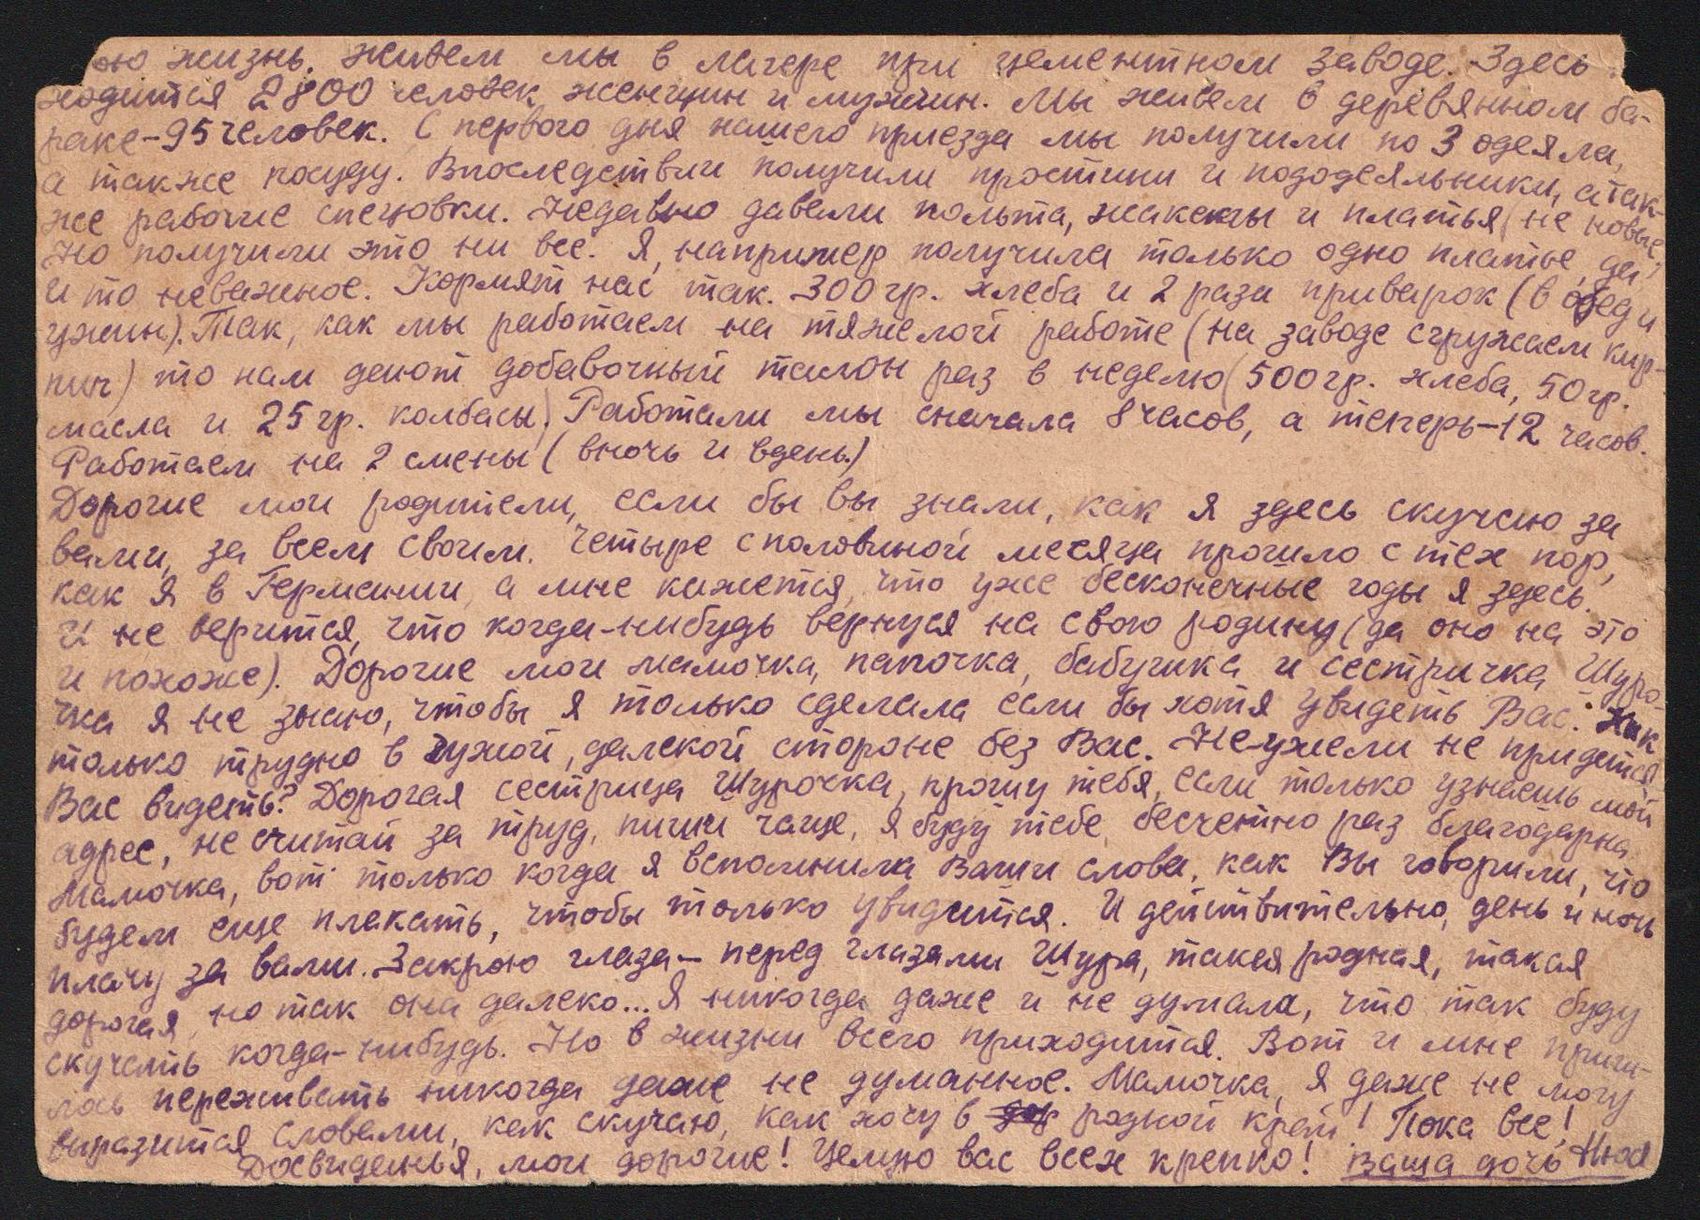 ою жизнь. Живем мы в лагере при цементном заводе. Здесь
ходится 2800 человек женщин и мужчин. Мы живем в деревянном ба-
раке-95 человек. С первого дня нашего приезда мы получили по 3 одеяла,
а также посуду. Впоследствии получили простини и пододеяльники, а так-
же рабочие спецовки. Недавно давали польта, жакеты и платья (не новые)
Но получили это ни все. Я, например получила только одно платье, да
и то неважное. Кормят нас так. 300 гр. хлеба и 2 раза приварок (в обед и
ужин). Так, как мы работаем на тяжелой работе (на заводе сгружаем кир-
пич) то нам дают добавочный талон раз в неделю (500 гр. хлеба, 50 гр.
масла и 25 гр. колбасы). Работали мы сначала 8 часов, а теперь-12 часов.
Работаем на 2 смены (вночь и вдень.)
Дорогие мои родители, если бы вы знали, как я здесь скучаю за
вами, за всем своим. Четыре с половиной месяца прошло с тех пор,
как я в Германии, а мне кажется, что уже бесконечные годы я здесь.
И не верится, что когда-нибудь вернуся на свою родину (да оно на это
и похоже). Дорогие мои мамочка, папочка, бабушка и сестричка Шуро-
чка я не знаю, чтобы я только сделала если бы хотя увидеть Вас. Как
только трудно в чужой, далекой стороне без Вас. Не-ужели не придется
Вас видеть? Дорогая сестрица Шурочка, прошу тебя, если только узнаешь мой
адрес, не считай за труд, пиши чаще, я буду тебе бесчетно раз благодарна
Мамочка, вот только когда я вспомнила Ваши слова, как Вы говорили, что
будем еще плакать, чтобы только увидится. И действительно, день и ночь
плачу за вами. Закрою глаза- перед глазами Шура, такая родная, такая
дорогая, но так она далеко... Я никогда даже и не думала, что так буду
скучать когда-нибудь. Но в жизни всего приходится. Вот и мне приш-
лось переживать никогда даже не думанное. Мамочка, я даже не могу
выразится словами, как скучаю, как хочу в родной край! Пока все!
Досвиденья, мои дорогие! Целую вас всех крепко! Ваша дочь Нюся